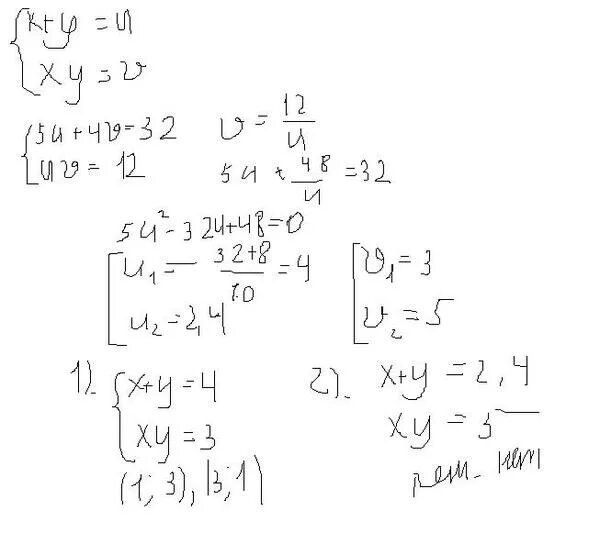 {x+y = u
{xy = v
{5u + 4v = 32
{uv = 12
v = 12/u
5u + 48/u = 32
5u² - 32u + 48 = 0
[u₁ = 32+8/10 = 4
[u₂ = 2,4
[v₁ = 3
[v₂ = 5
1). {x+y = 4
{xy = 3
(1; 3), (3; 1)
2). x+y = 2,4
xy = 5
реш. нет